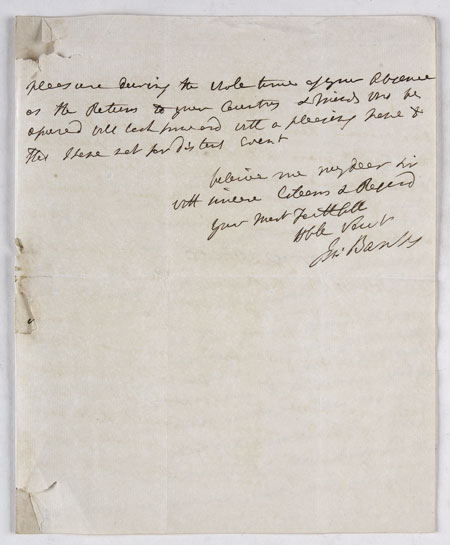 pleasure during the whole time of your Absence
as the Return to your Country & Friends who be
assured will look forward with a pleasing hope to
that I hope not far distant Event
believe me my dear Sir
with sincere Esteem & Regard
your most Faithfull
Hble Servt
Jos: Banks